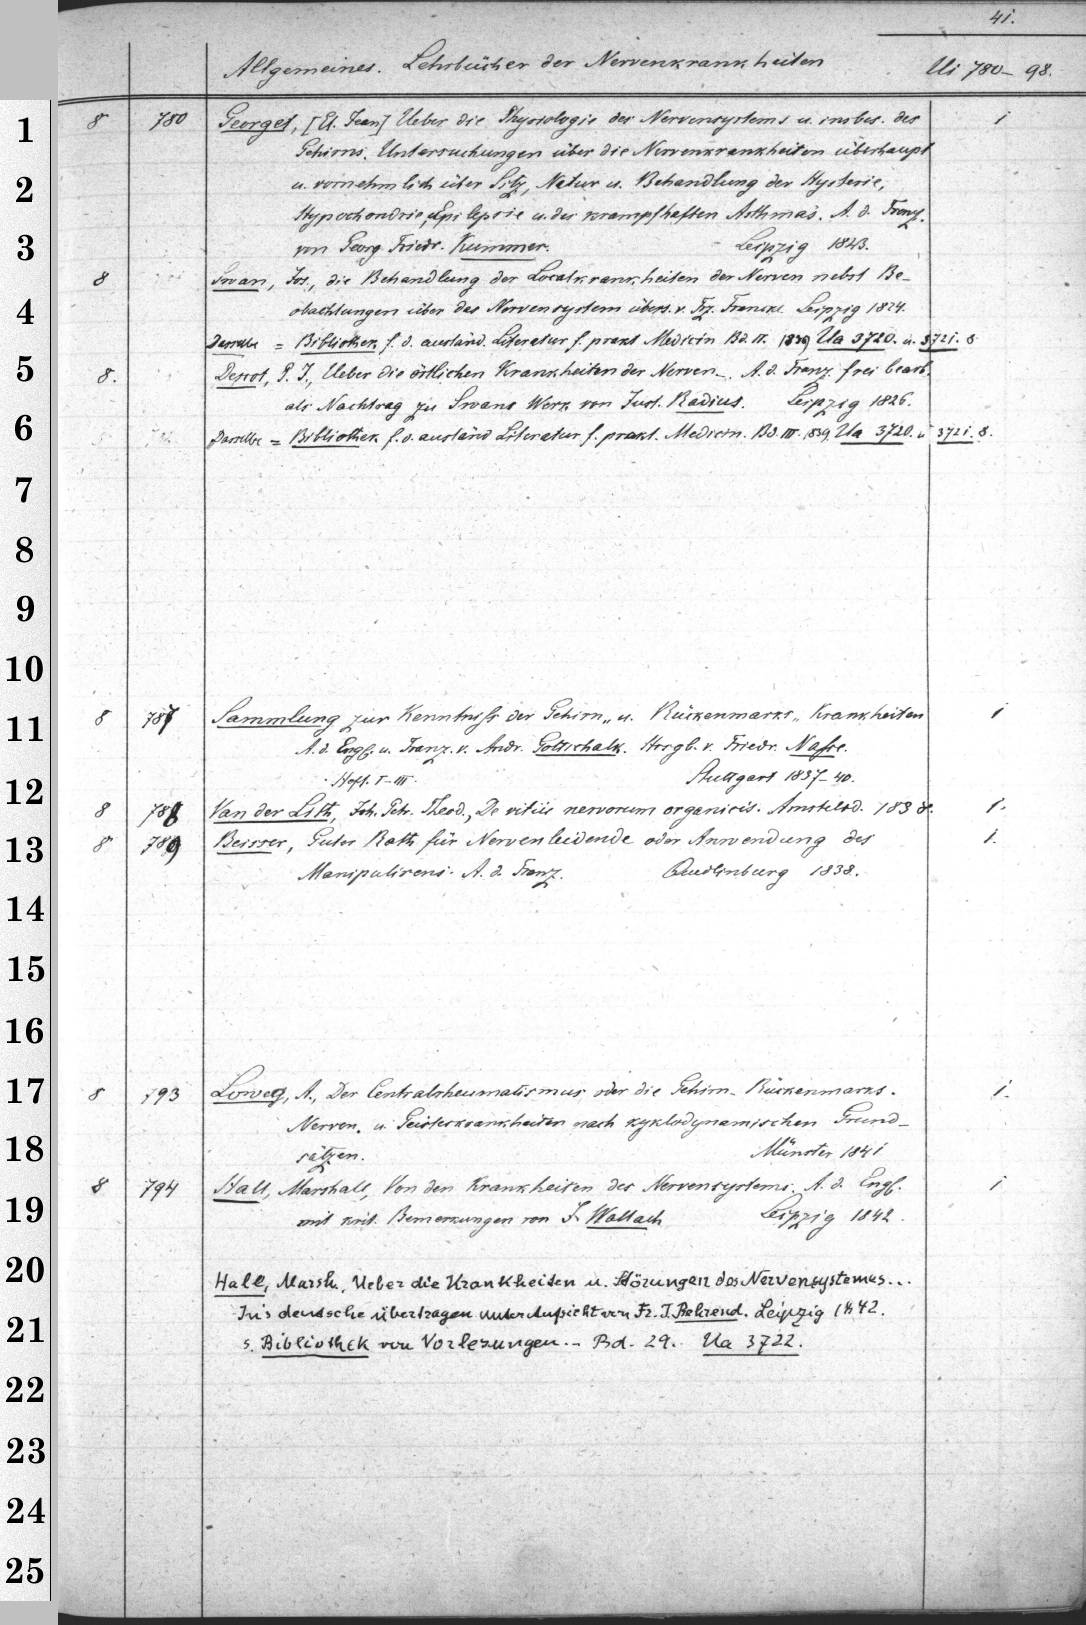 41.
Allgemeines. Lehrbücher der Nervenkrankheiten Ui 780–98.
1
8 780 Georget, [Et. Jean] Ueber die Physiologie des Nervensystems u. insbes. des 1
Gehirns. Untersuchungen über die Nervenkrankheiten überhaupt
2
u. vornehmlich über Sitz, Natur u. Behandlung der Hysterie,
Hypochondrie, Epilepsie u. des krampfhaften Asthma's. A. d. Franz.
3
von Georg Friedr. Kummer. Leipzig 1823.
8 Swan, Jos., die Behandlung der Localkrankheiten der Nerven nebst Be-
4
obachtungen über das Nervensystem übers. v. Frz. Francke Leipzig 1824.
Dasselbe = Bibliothek f. d. ausländ. Literatur f. prakt Medicin Bd. II. 1839 Ua 3720. u. 3721. 8
5
8. Descot, P. J., Ueber die örtlichen Krankheiten der Nerven –. A. d. Franz. frei bearb.
als Nachtrag zu Swans Werk von Just. Radius. Leipzig 1826.
6
Dasselbe = Bibliothek f. d. ausländ Literatur f. prakt. Medicin. Bd. III. 1839. Ua 3720. u 3721. 8.
7
8
9
10
11
8 787 Sammlung zur Kenntniss der Gehirn„ u. Rückenmarks„ Krankheiten 1
A. d. Engl. u. Franz. v. Andr. Gottschalk. Hrsgb. v. Friedr. Nasse.
Heft. I–III. Stuttgart 1837–40.
12
8 788 Van der Lith, Joh. Petr. Theod., De vitiis nervorum organicis. Amstelod. 1838. 1.
13
8 789 Beisser, Guter Rath für Nervenleidende oder Anwendung des 1.
Manipulirens. A. d. Franz. Quedlinburg 1838.
14
15
16
17
8 793 Loweg, A., Der Centralrheumatismus oder die Gehirn- Rückenmarks- 1.
Nerven- u. Geisteskrankheiten nach kyklodynamischen Grund-
18
sätzen. Münster 1841
8 794 Hall, Marshall, Von den Krankheiten des Nervensystems. A. d. Engl. 1
19
mit krit. Bemerkungen von J. Wallach Leipzig 1842.
20
Hall, Marsh., Ueber die Krankheiten u. Störungen des Nervensystemes...
In's deutsche übertragen unter Aufsicht von Fr. J. Behrend. Leipzig 1842.
21
s. Bibliothek von Vorlesungen.– Bd. 29. Ua 3722.
22
23
24
25